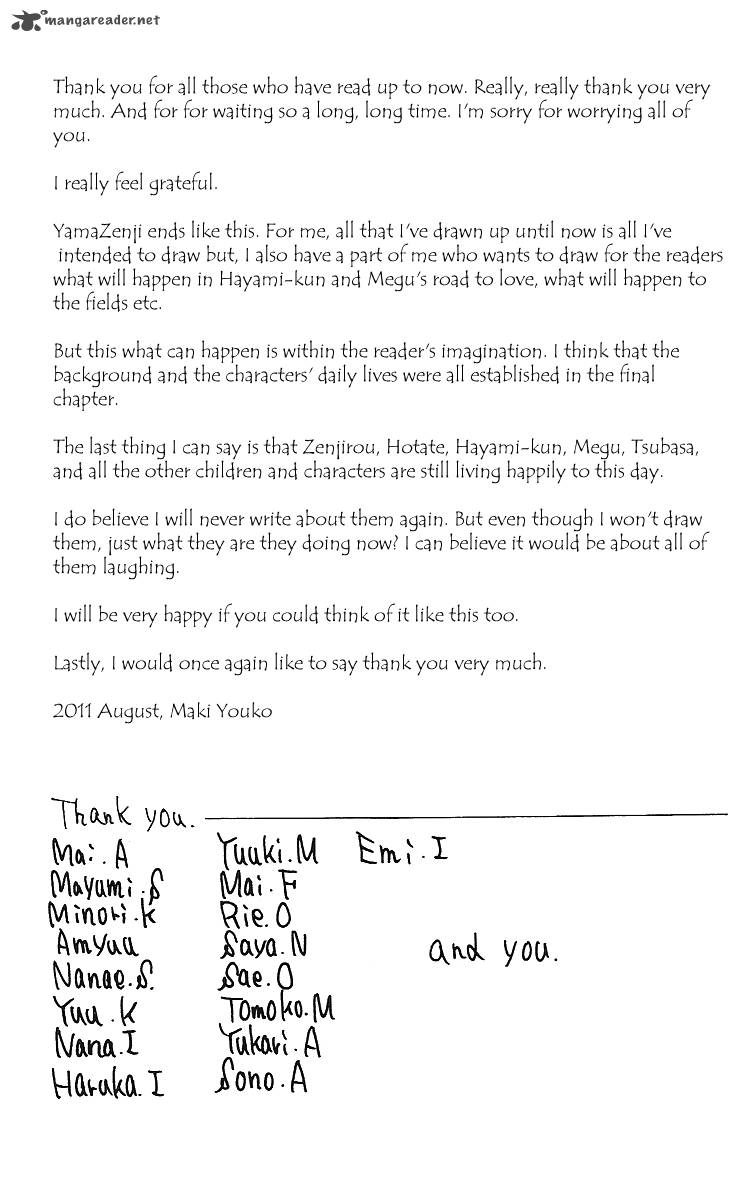 mangareader.net
Thank you for all those who have read up to now. Really, really thank you very
much. And for for waiting so a long, long time. I'm sorry for worrying all of
you.
I really feel grateful.
YamaZenji ends like this. For me, all that I've drawn up until now is all I've
intended to draw but, I also have a part of me who wants to draw for the readers
what will happen in Hayami-kun and Megu's road to love, what will happen to
the fields etc.
But this what can happen is within the reader's imagination. I think that the
background and the characters' daily lives were all established in the final
chapter.
The last thing I can say is that Zenjirou, Hotate, Hayami-kun, Megu, Tsubasa,
and all the other children and characters are still living happily to this day.
I do believe I will never write about them again. But even though I won't draw
them, just what they are they doing now? I can believe it would be about all of
them laughing.
I will be very happy if you could think of it like this too.
Lastly, I would once again like to say thank you very much.
2011 August, Maki Youko
Thank you.
Mai.A Yuuki.M Emi.I
Mayumi.S Mai.F
Minori.K Rie.O
Amyuu Saya.N and you.
Nanae.S. Sae.O
Yuu.K Tomoko.M
Nana.I Yukari.A
Haruka.I Sono.A